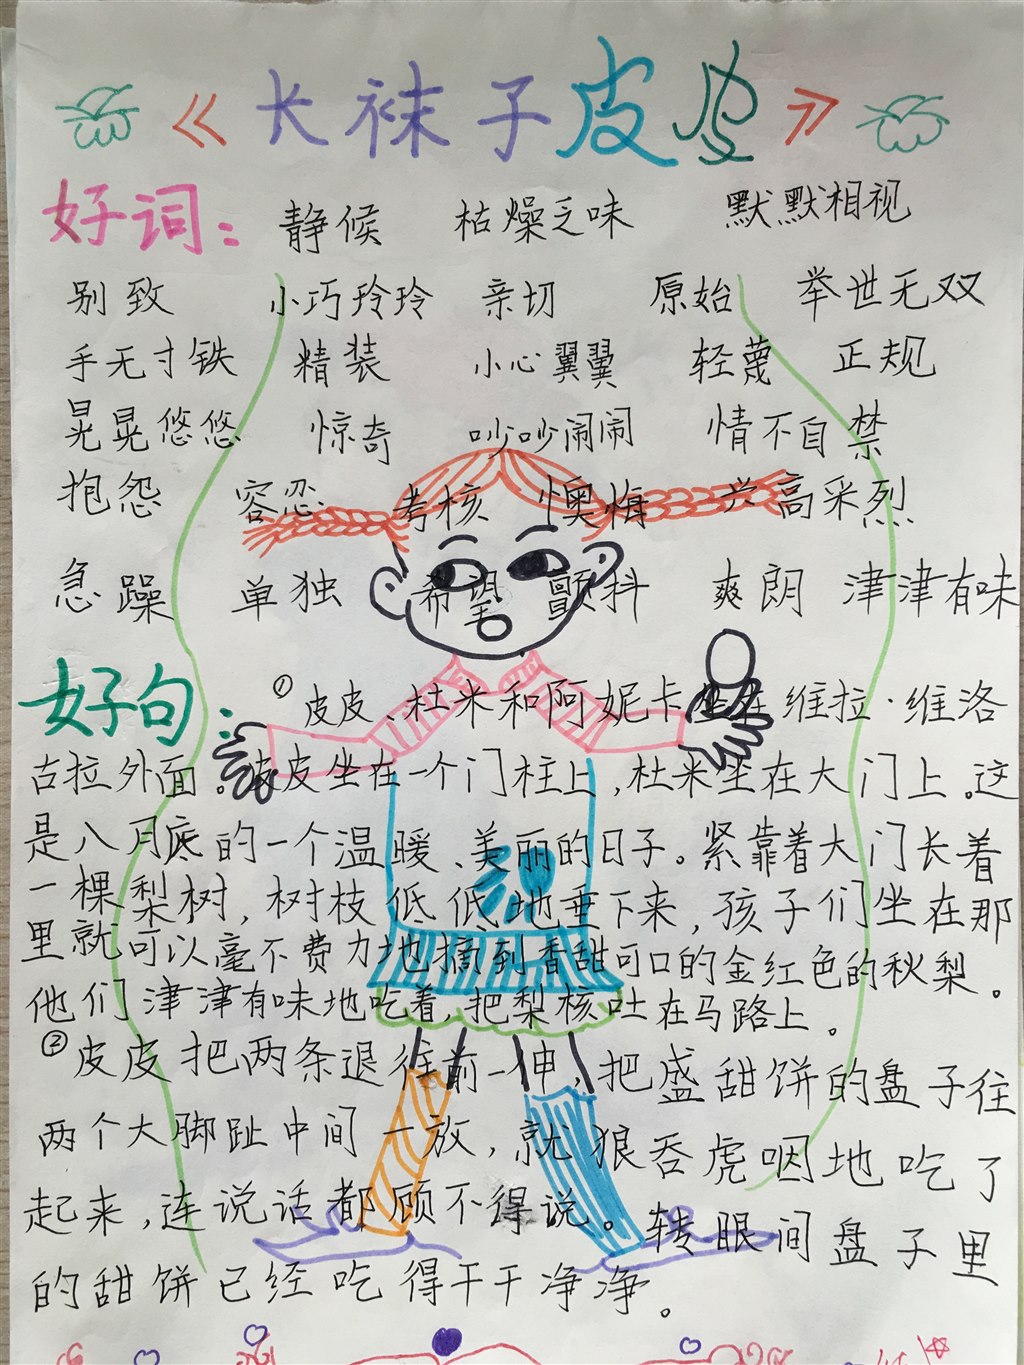 《长袜子皮皮》
好词： 静候 枯燥乏味 默默相视
别致 小巧玲玲 亲切 原始 举世无双
手无寸铁 精装 小心翼翼 轻蔑 正规
晃晃悠悠 惊奇 吵吵闹闹 情不自禁
抱怨 容忍 考核 懊悔 兴高采烈
急躁 单独 希望 颤抖 爽朗 津津有味
好句： ①皮皮、杜米和阿妮卡坐在维拉·维洛
古拉外面。皮皮坐在一个门柱上，杜米坐在大门上。这
是八月底的一个温暖、美丽的日子。紧靠着大门长着
一棵梨树，树枝低低地垂下来，孩子们坐在那
里就可以毫不费力地摘到香甜可口的金红色的秋梨。
他们津津有味地吃着，把梨核吐在马路上。
②皮皮把两条退往前一伸，把盛甜饼的盘子往
两个大脚趾中间一放，就狼吞虎咽地吃了
起来，连说话都顾不得说。转眼间盘子里
的甜饼已经吃得干干净净。